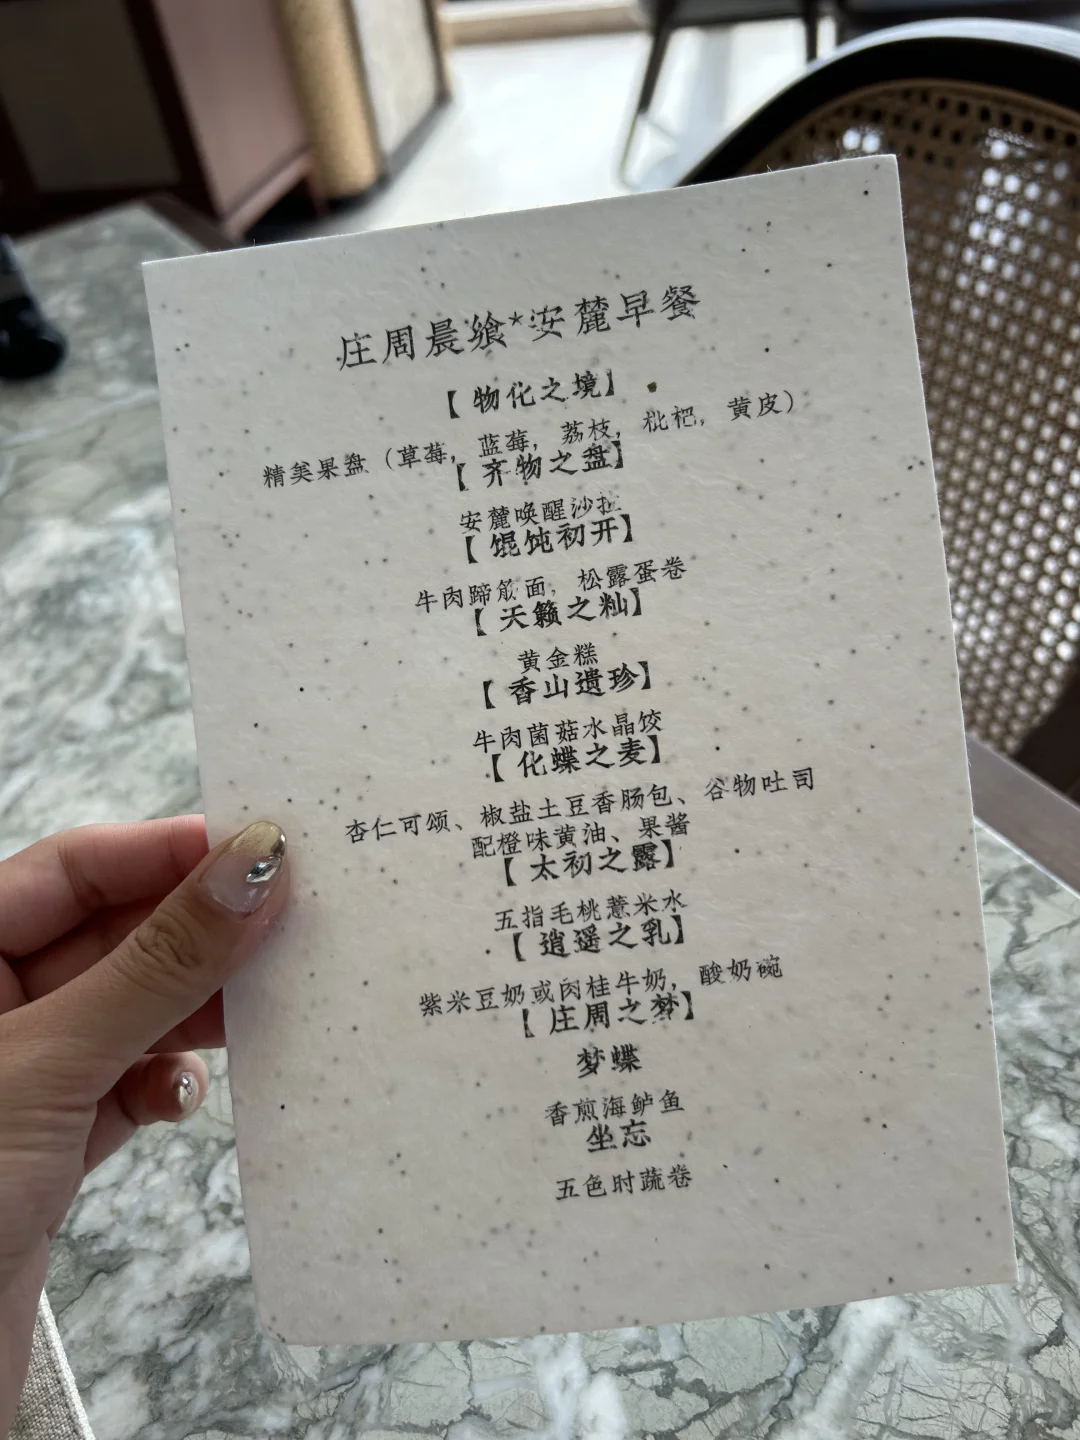 庄周晨飨*安麓早餐
【物化之境】
精美果盘（草莓，蓝莓，荔枝，枇杷，黄皮）
【齐物之盘】
安麓唤醒沙拉
【馄饨初开】
牛肉蹄筋面，松露蛋卷
【天籁之籼】
黄金糕
【香山遗珍】
牛肉菌菇水晶饺
【化蝶之麦】
杏仁可颂、椒盐土豆香肠包、谷物吐司
配橙味黄油、果酱
【太初之露】
五指毛桃薏米水
【逍遥之乳】
紫米豆奶或肉桂牛奶，酸奶碗
【庄周之梦】
梦蝶
香煎海鲈鱼
坐忘
五色时蔬卷